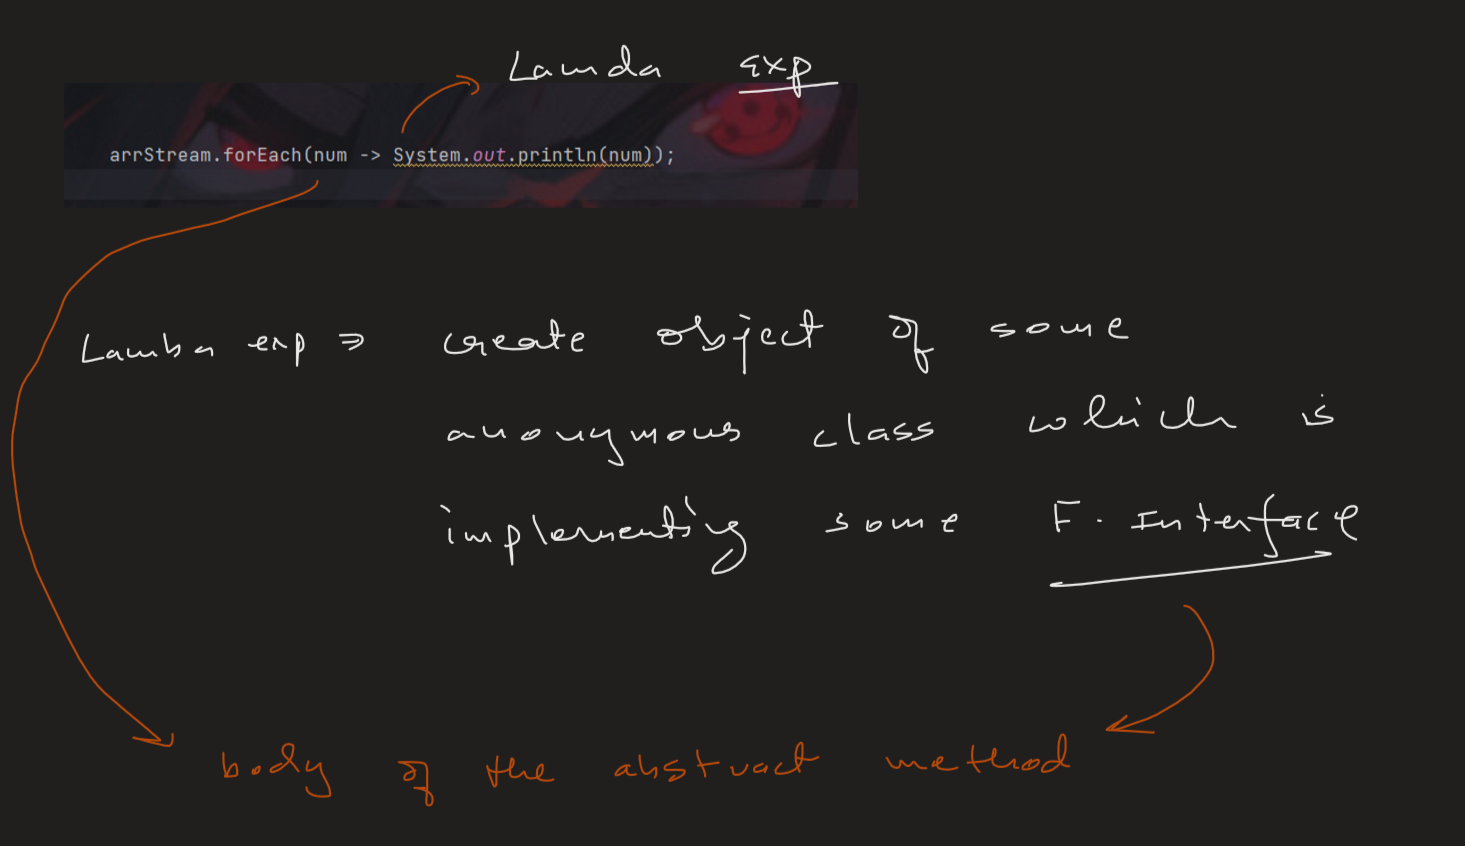 Lamda exp
arrStream.forEach(num -> System.out.println(num));
Lamba exp ⇒ create object of some
anonymous class which is
implementing some F. Interface
body of the abstract method